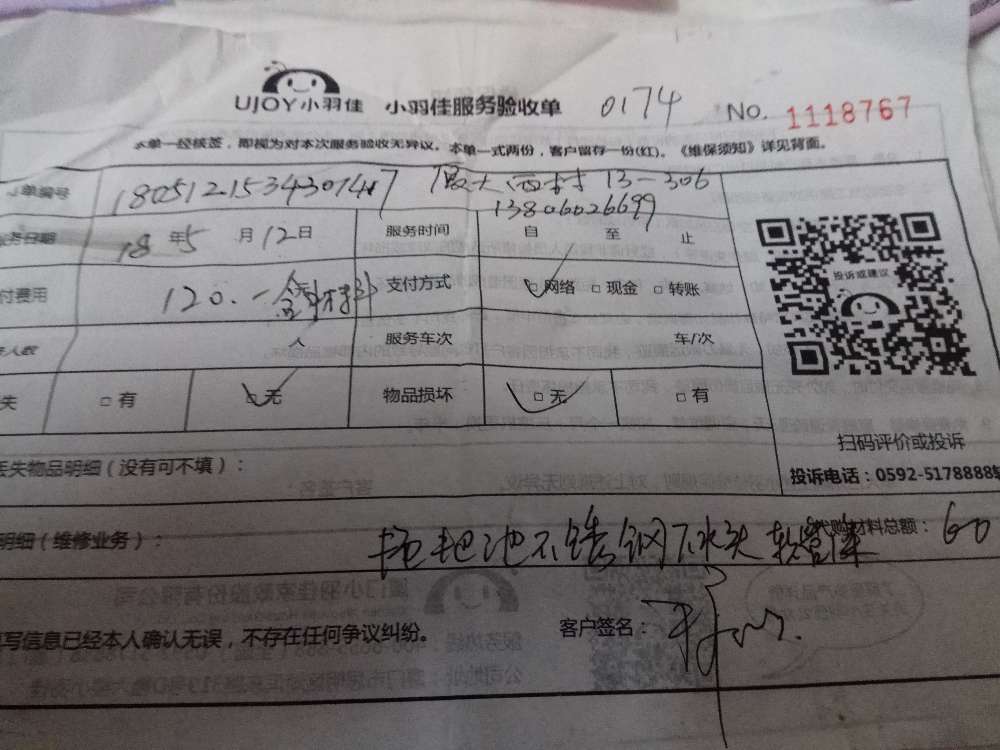 UJOY小羽佳 小羽佳服务验收单 0174 No. 1118767
本单一经核签，即视为对本次服务验收无异议。本单一式两份，客户留存一份(红)。《维保须知》详见背面。
单编号 厦大西村 13-306
13806026699
务日期 18年5月12日 服务时间 自 至 止
付费用 120.- 含材料 支付方式 网络 现金 转账
人数 人 服务车次 车/次
失 有 无 物品损坏 无 有
投诉或建议
扫码评价或投诉
投诉电话：0592-5178888转
丢失物品明细（没有可不填）：
明细（维修业务）： 代购材料总额： 60
拖把池不锈钢下水头 软管
写信息已经本人确认无误，不存在任何争议纠纷。 客户签名：